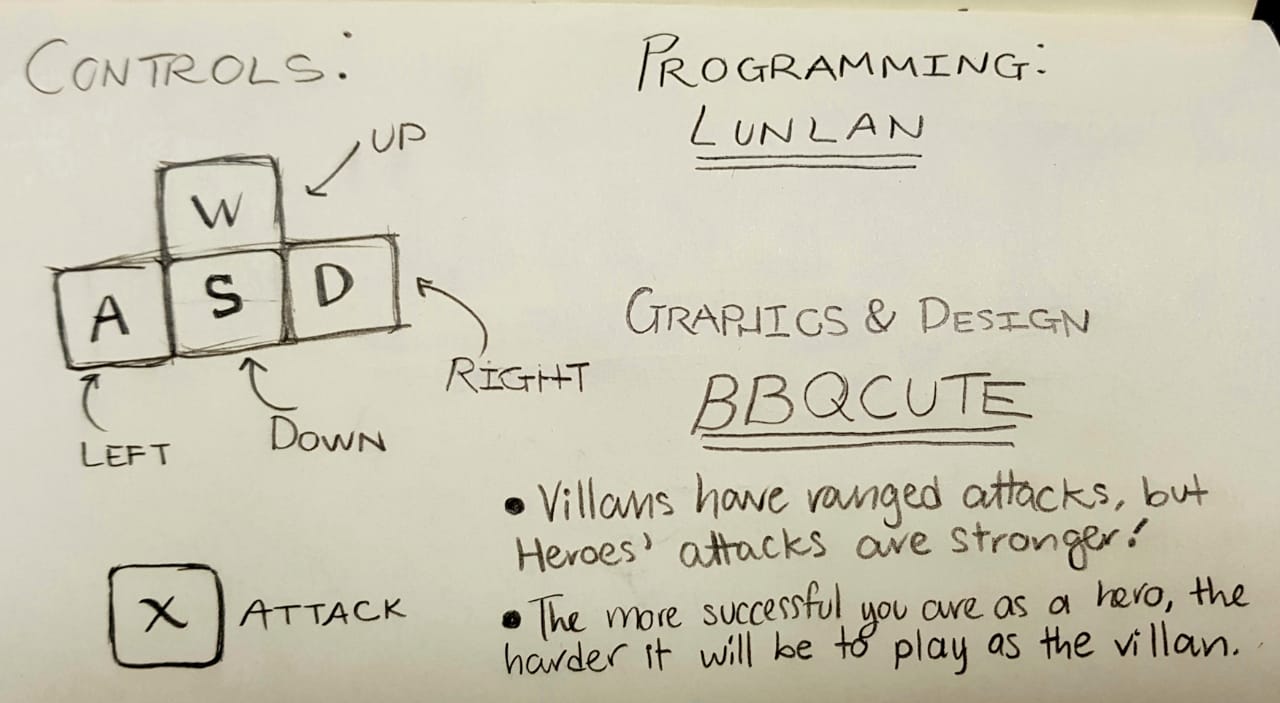 CONTROLS:
UP
W
A S D
RIGHT
LEFT
DOWN
X ATTACK
PROGRAMMING:
LUNLAN
GRAPHICS & DESIGN
BBQCUTE
• Villans have ranged attacks, but
Heroes' attacks are stronger!
• The more successful you are as a hero, the
harder it will be to play as the villan.